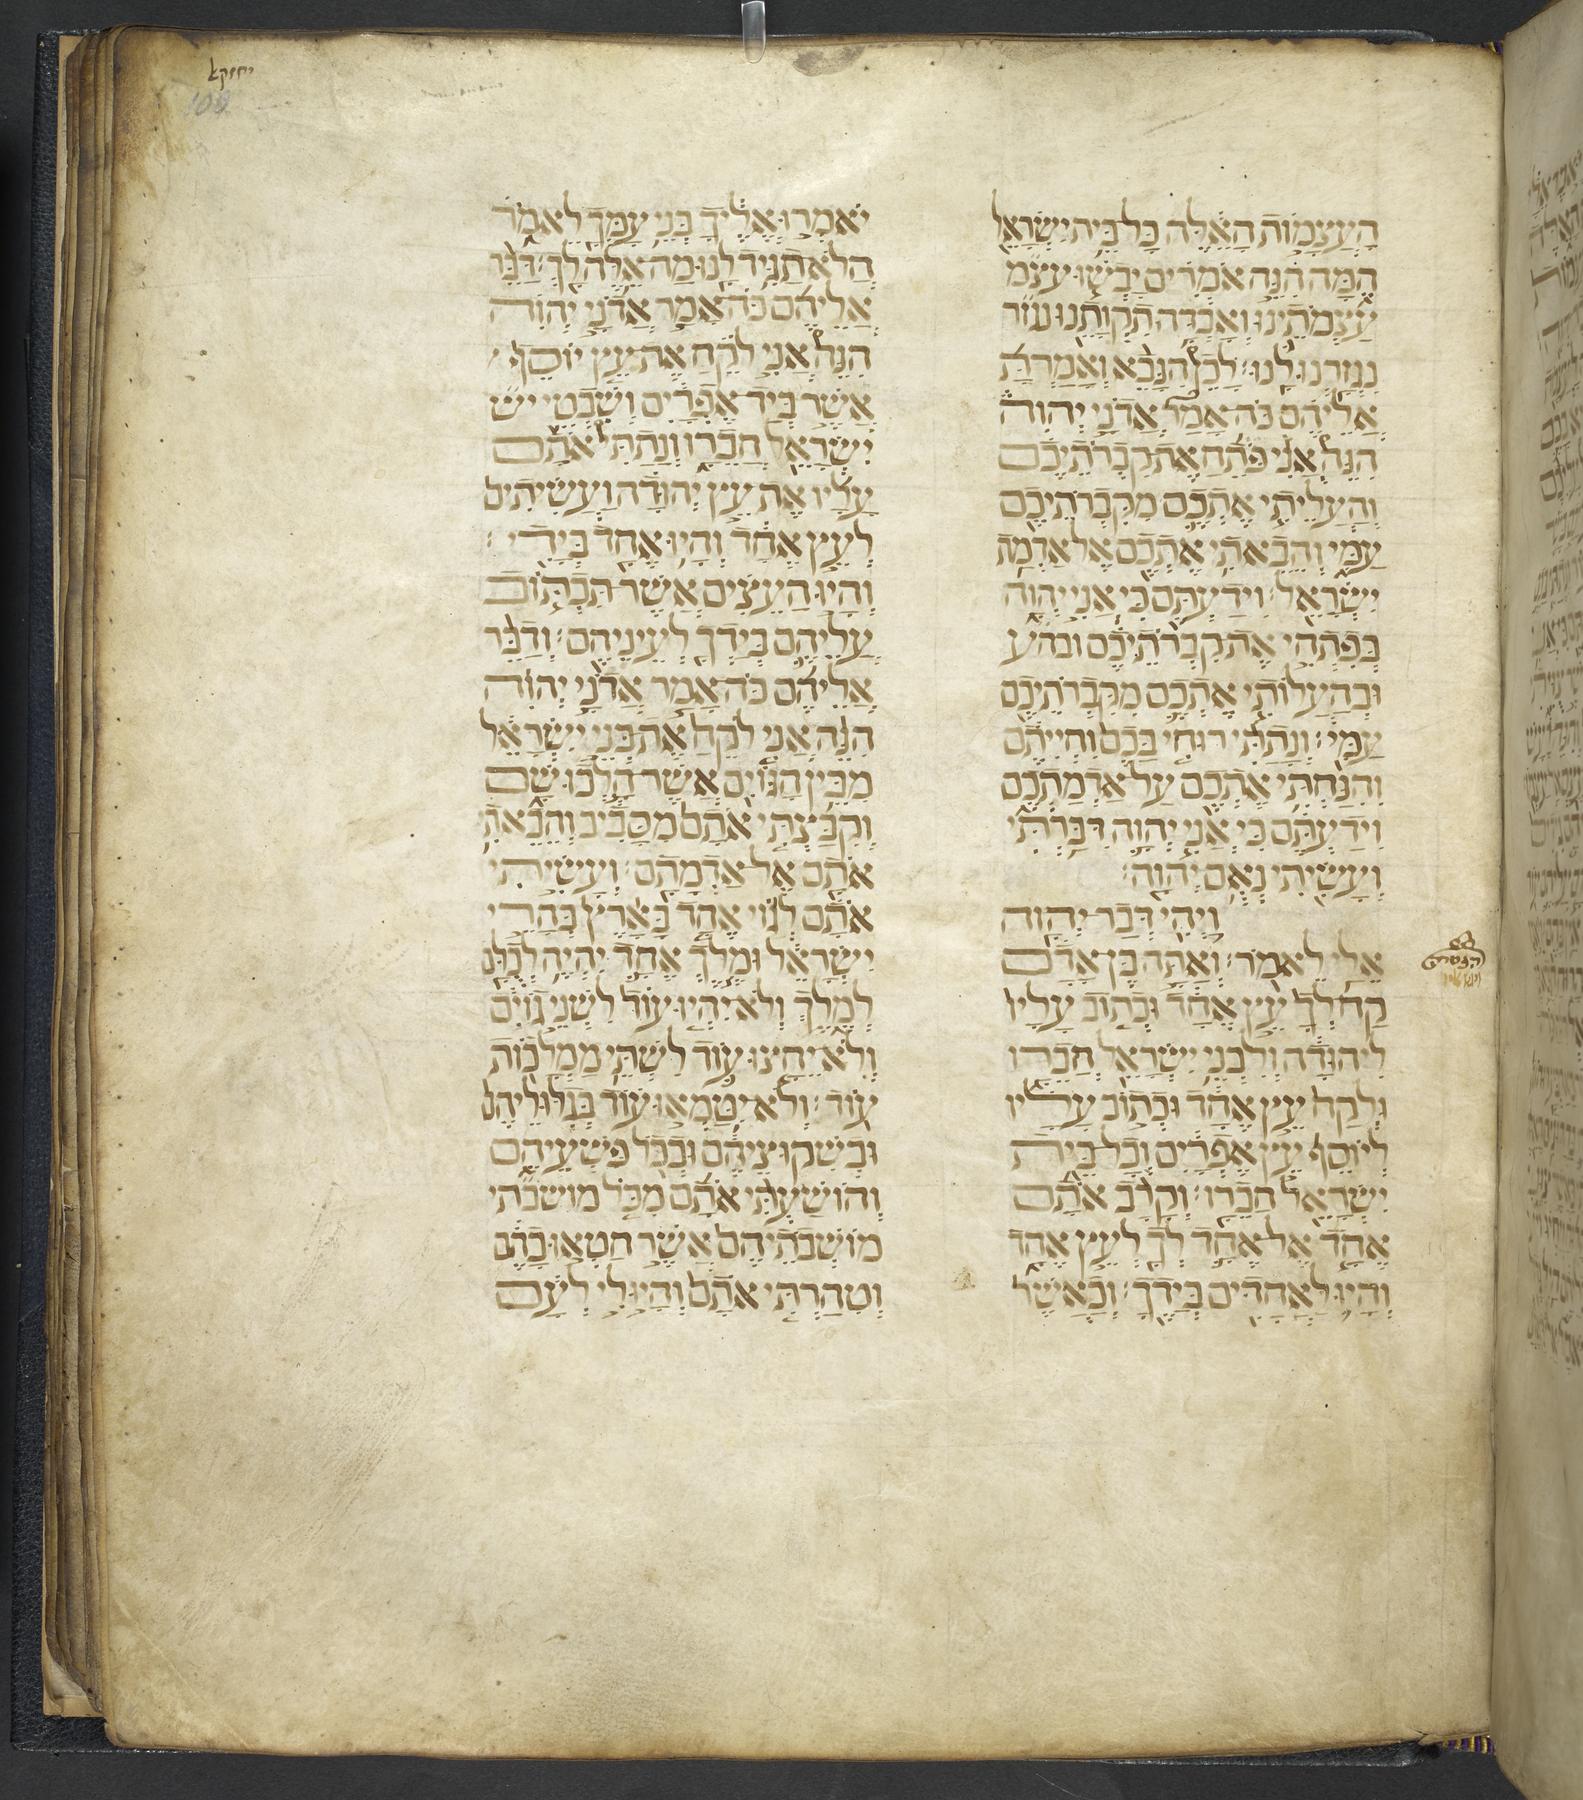 יחזקא
108
הָעֲצָמ֣וֹת הָאֵ֔לֶּה כָּל בֵּ֥ית יִשְׂרָאֵ֖ל
הֵ֑מָּה הִנֵּ֣ה אֹמְרִ֗ים יָבְשׁ֧וּ עצמ
עַצְמֹתֵ֛ינוּ וְאָבְדָ֥ה תִקְוָתֵ֖נוּ
נִגְזַ֥רְנוּ לָֽנוּ׃ לָכֵן֩ הִנָּבֵ֨א וְאָמַרְתָּ֜
אֲלֵיהֶ֗ם כֹּֽה אָמַר֮ אֲדֹנָ֣י יְהוִה֒
הִנֵּה֩ אֲנִ֨י פֹתֵ֜חַ אֶת קִבְרֽוֹתֵיכֶ֗ם
וְהַעֲלֵיתִ֥י אֶתְכֶ֛ם מִקִּבְרֹתֵיכֶ֖ם
עַמִּ֑י וְהֵבֵאתִ֥י אֶתְכֶ֖ם אֶל אַדְמַ֥ת
יִשְׂרָאֵֽל׃ וִֽידַעְתֶּ֖ם כִּֽי אֲנִ֣י יְהוָ֑ה
בְּפִתְחִ֣י אֶת קִבְרֽוֹתֵיכֶ֗ם ובהע
וּבְהַעֲלוֹתִ֥י אֶתְכֶ֛ם מִקִּבְרֹתֵיכֶ֖ם
עַמִּֽי׃ וְנָתַתִּ֨י רוּחִ֤י בָכֶם֙ וִחְיִיתֶ֔ם
וְהִנַּחְתִּ֥י אֶתְכֶ֖ם עַל אַדְמַתְכֶ֑ם
וִידַעְתֶּ֞ם כִּי אֲנִ֧י יְהוָ֛ה דִּבַּ֥רְתִּי
וְעָשִׂ֖יתִי נְאֻם יְהוָֽה׃
וַיְהִ֥י דְבַר יְהוָ֖ה
אֵלַ֥י לֵאמֹֽר׃ וְאַתָּ֣ה בֶן אָדָ֗ם
קַח לְךָ֙ עֵ֣ץ אֶחָ֔ד וּכְתֹ֤ב עָלָיו֙
לִֽיהוּדָ֔ה וְלִבְנֵ֥י יִשְׂרָאֵ֖ל חֲבֵרָ֑ו
וּלְקַח֙ עֵ֣ץ אֶחָ֔ד וּכְת֣וֹב עָלָ֗יו
לְיוֹסֵף֙ עֵ֣ץ אֶפְרַ֔יִם וְכָל בֵּ֥ית
יִשְׂרָאֵ֖ל חֲבֵרָֽו׃ וְקָרַ֨ב אֹתָ֜ם
אֶחָ֧ד אֶל אֶחָ֛ד לְךָ֖ לְעֵ֣ץ אֶחָ֑ד
וְהָי֥וּ לַאֲחָדִ֖ים בְּיָדֶֽךָ׃ וְכַֽאֲשֶׁר֙
יֹאמְר֣וּ אֵלֶ֔יךָ בְּנֵ֥י עַמְּךָ֖ לֵאמֹ֑ר
הֲלֽוֹא תַגִּ֥יד לָ֖נוּ מָה אֵ֥לֶּה לָּֽךְ׃ דַּבֵּ֣ר
אֲלֵיהֶ֗ם כֹּֽה אָמַר֮ אֲדֹנָ֣י יְהוִה֒
הִנֵּה֩ אֲנִ֨י לֹקֵ֜חַ אֶת עֵ֤ץ יוֹסֵף֙
אֲשֶׁ֣ר בְּיַד אֶפְרַ֔יִם וְשִׁבְטֵ֥י יש
יִשְׂרָאֵ֖ל חֲבֵרָ֑ו וְנָתַתִּי֩ אוֹתָ֨ם
עָלָ֜יו אֶת עֵ֣ץ יְהוּדָ֗ה וַֽעֲשִׂיתִם֙
לְעֵ֣ץ אֶחָ֔ד וְהָי֥וּ אֶחָ֖ד בְּיָדִֽי׃
וְהָי֨וּ הָעֵצִ֜ים אֲשֶׁר תִּכְתֹּ֧וב
עֲלֵיהֶ֛ם בְּיָדְךָ֖ לְעֵינֵיהֶֽם׃ וְדַבֵּ֣ר
אֲלֵיהֶ֗ם כֹּֽה אָמַר֮ אֲדֹנָ֣י יְהוִה֒
הִנֵּ֨ה אֲנִ֤י לֹקֵ֙חַ֙ אֶת בְּנֵ֣י יִשְׂרָאֵ֔ל
מִבֵּ֥ין הַגּוֹיִ֖ם אֲשֶׁ֣ר הָֽלְכוּ שָׁ֑ם
וְקִבַּצְתִּ֤י אֹתָם֙ מִסָּבִ֔יב וְהֵבֵאתִ֥י
אוֹתָ֖ם אֶל אַדְמָתָֽם׃ וְעָשִׂ֣יתִי
אֹ֠תָם לְג֨וֹי אֶחָ֤ד בָּאָ֙רֶץ֙ בְּהָרֵ֣י
יִשְׂרָאֵ֔ל וּמֶ֧לֶךְ אֶחָ֛ד יִֽהְיֶ֥ה לְכֻלָּ֖ם
לְמֶ֑לֶךְ וְלֹ֤א יִֽהְיוּ עוֹד֙ לִשְׁנֵ֣י גוֹיִ֔ם
וְלֹ֨א יֵחָ֥צוּ ע֛וֹד לִשְׁתֵּ֥י מַמְלָכ֖וֹת
עֽוֹד׃ וְלֹ֧א יִֽטַּמְּא֣וּ ע֗וֹד בְּגִלּֽוּלֵיהֶם֙
וּבְשִׁקּ֣וּצֵיהֶ֔ם וּבְכֹ֖ל פִּשְׁעֵיהֶ֑ם
וְהוֹשַׁעְתִּ֣י אֹתָ֗ם מִכֹּ֤ל מושבתי
מוֹשְׁבֹתֵיהֶם֙ אֲשֶׁ֣ר חָטְא֣וּ בָהֶ֔ם
וְטִהַרְתִּ֤י אוֹתָם֙ וְהָיוּ לִ֣י לְעָ֔ם
הפטרת
ויגש אליו